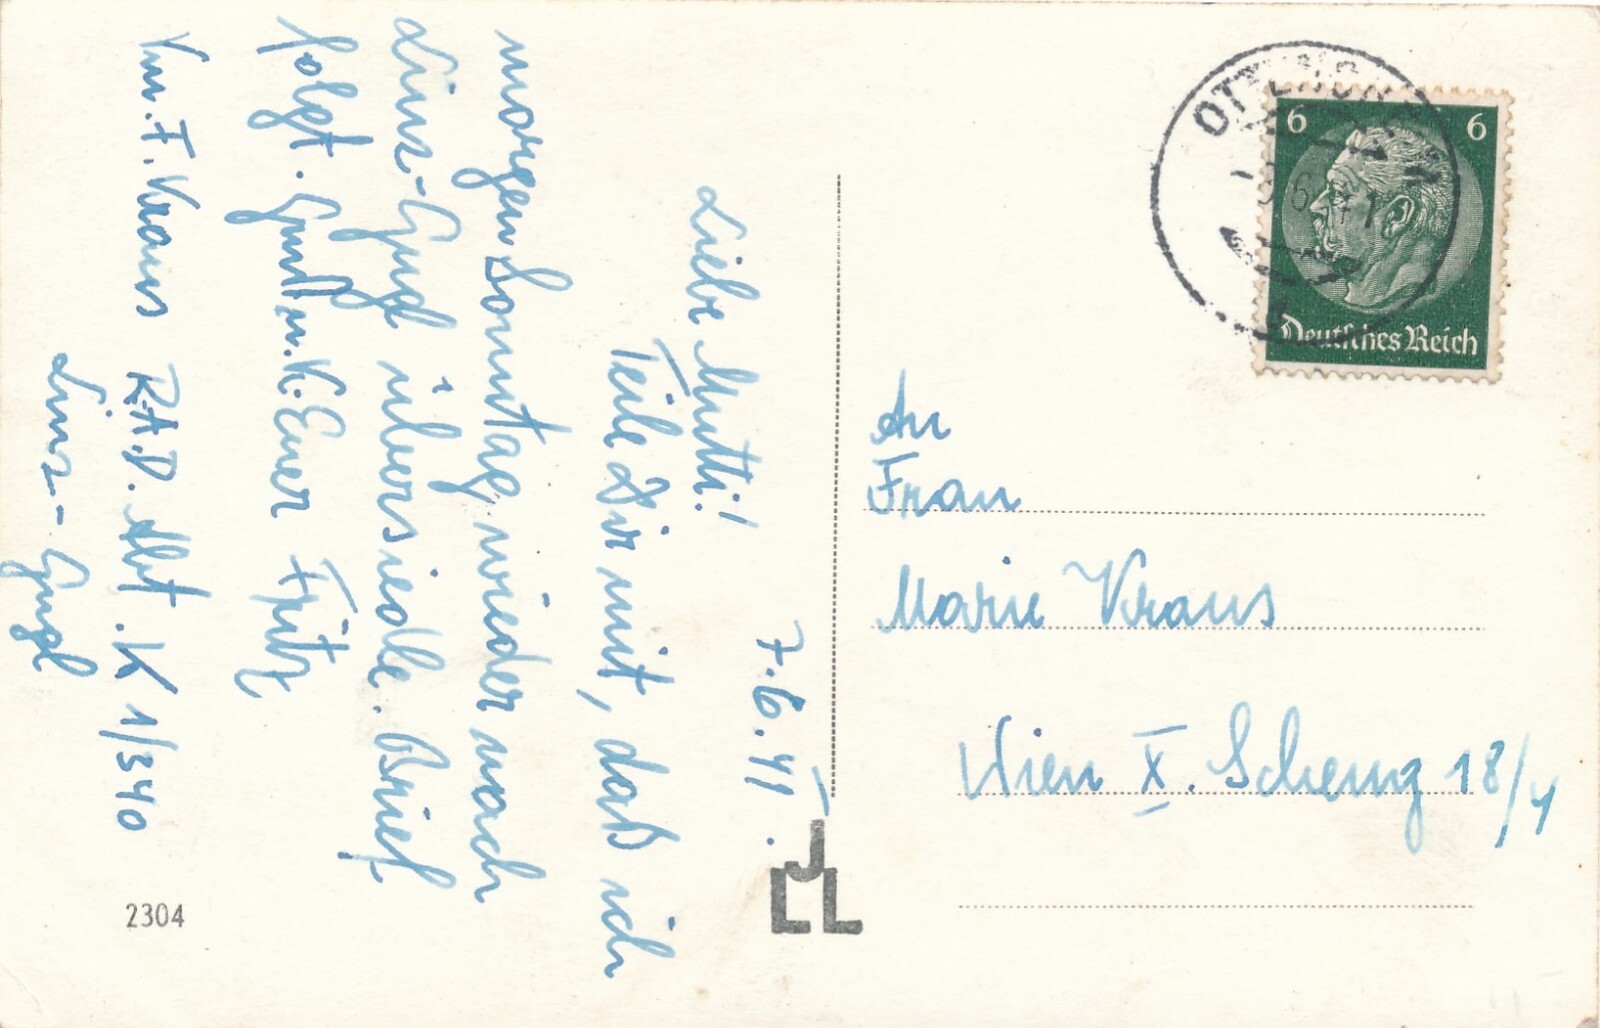 7.6.41.
Liebe Mutti!
Teile Dir mit, daß ich
morgen Sonntag wieder nach
Linz-Gugl übersiedle. Brief
folgt. Gruß u. K. Euer Fritz
F. Kraus R.A.D. Abt. K 1/340
Linz-Gugl
2304
JLL
6 6
Deutsches Reich
6.41
An
Frau
Marie Kraus
Wien X. 18/4